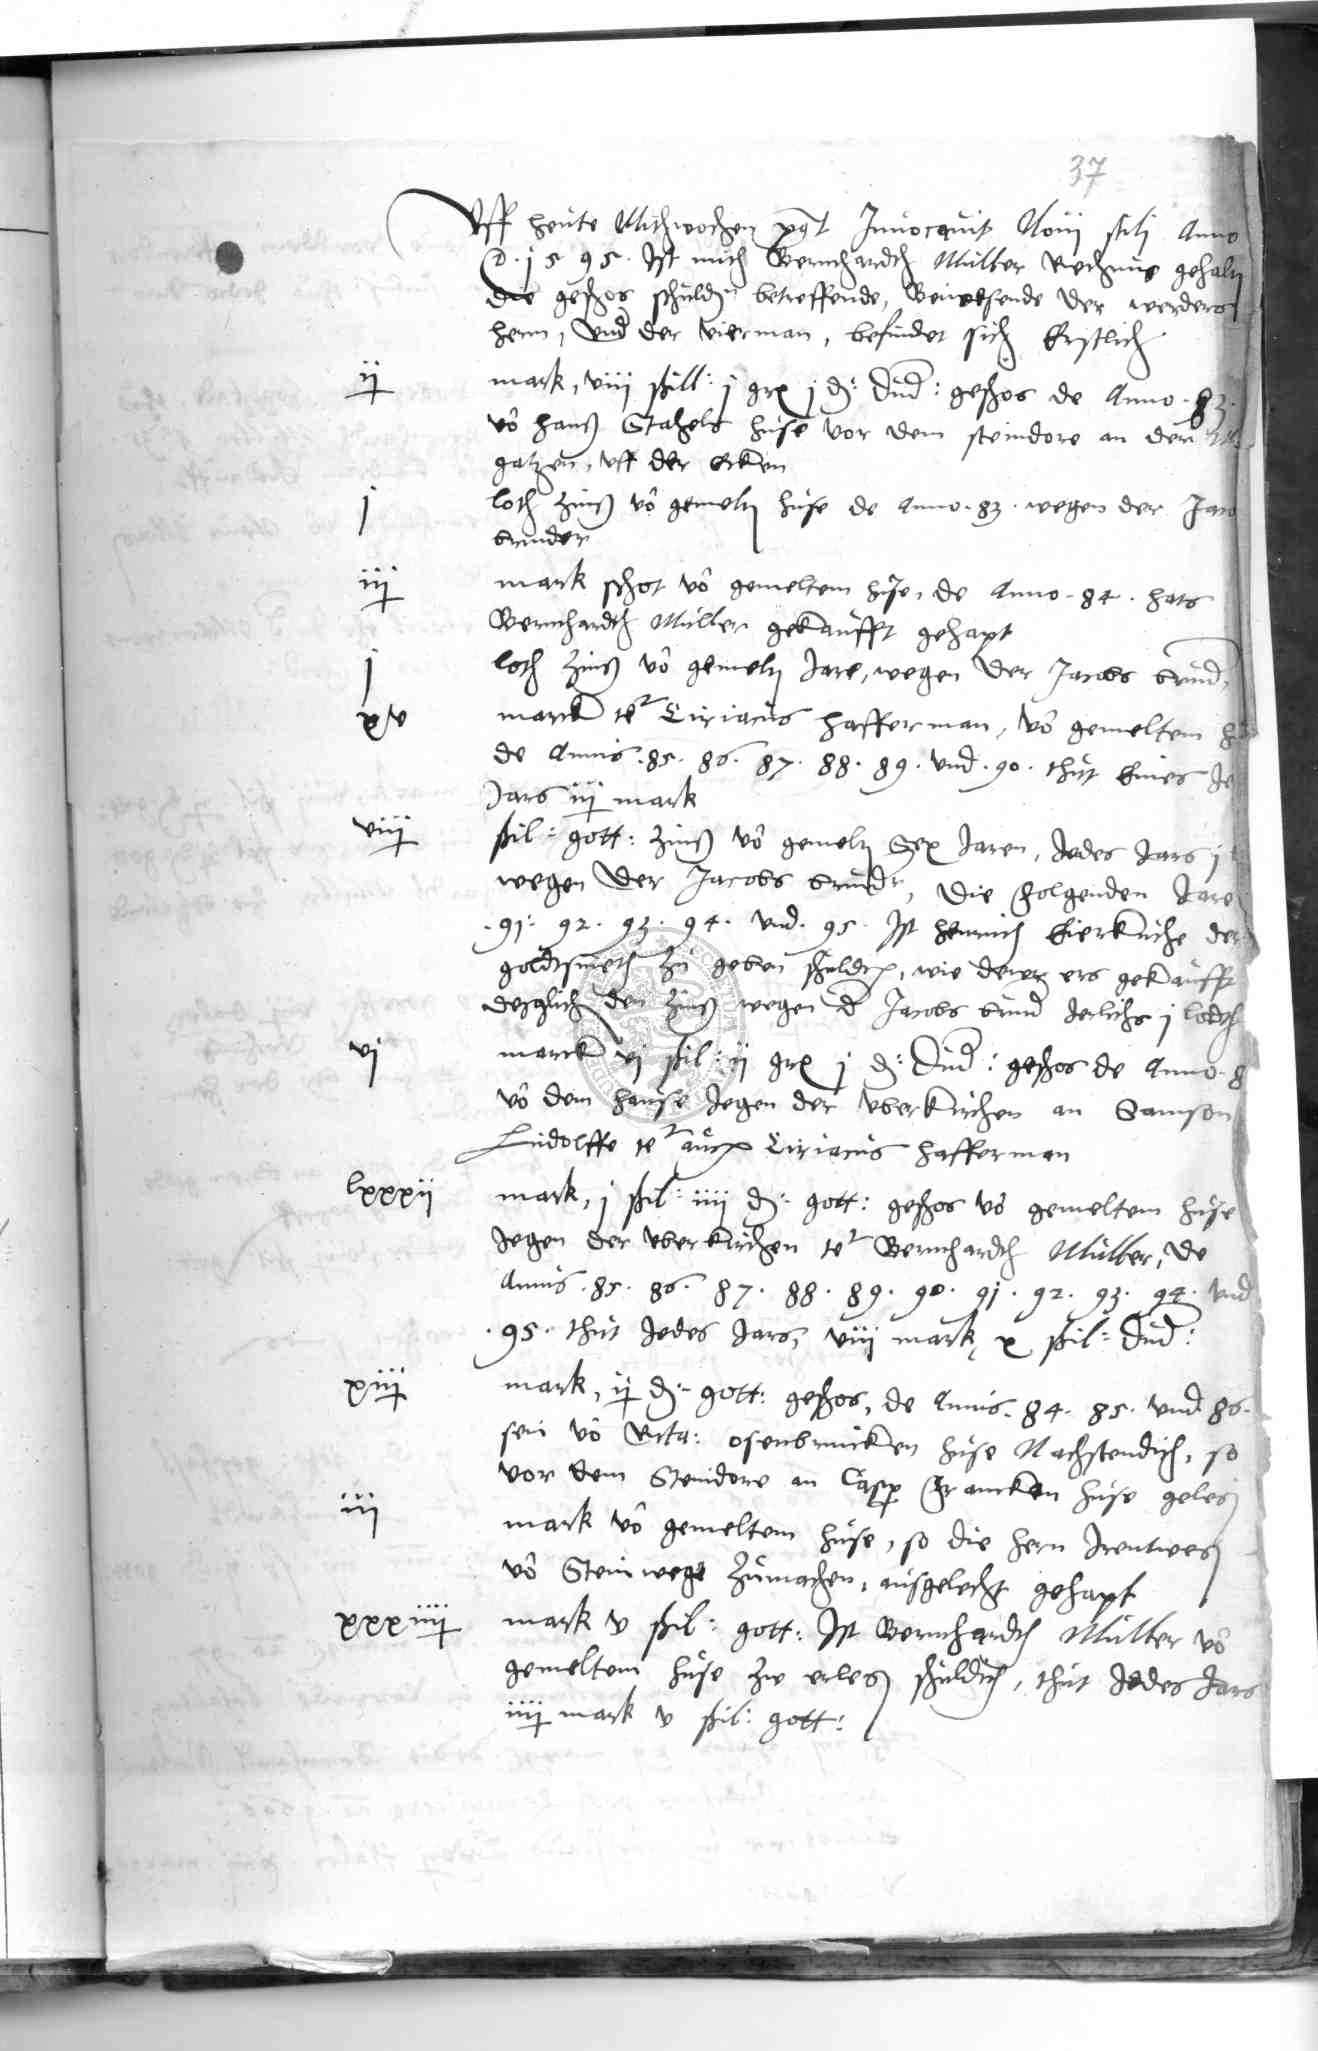 37
Uff heute Mithwochen post Invocavit Novi stili Anno
D. 1595. Ist mich Bernhardth Müller Rechnung gehalten
die geschos schulden betreffende, Beiwesende der werders
hern, und der vierman, befindet sich Erstlich
iij mark, viii schill: j gr j d: Sund: geschos de Anno 83.
vo hanß Stahels huse vor dem steindore an der
gatzen, uff der Ecken
j loth zinß vo gemelten huse de Anno 83. wegen der Jaco
bruder
iij mark schot vo gemeltem huse, de Anno 84. hats
Bernhardth Müller gekaufft gehapt
j loth zinß vo gemelten Jare, wegen der Jacobs brud
xv marck Ciriacus Hafferman, vo gemeltem
de Annis 85. 86. 87. 88. 89. und 90. thut Eines Je
Jars iij mark
viij schil: gott: zinß vo gemelten Sex Jaren, Jedes Jars j
wegen der Jacobs bruder, die folgenden Jare
91. 92. 93. 94. und 95. Ist henrich Eierkuche der
goldtsmeth zu geben schuldich, wie ers gekaufft
desglich den zinß wegen d Jacobs brud Jerlichs j lodth
vj marck vj schil: ij gr j d: Sund: geschos de Anno 8
vo dem hause Jegen der Uberkirchen an Samson
Ludolffe auch Ciriacus Hafferman
lxxxij mark, j schil: iiij d: gott: geschos vo gemeltem huse
Jegen der Uberkirchen Bernhardth Müller, de
Annis 85. 86. 87. 88. 89. 90. 91. 92. 93. 94. und
95. thut Jedes Jars, viij mark x schil: Sund:
xiij mark, ij d: gott: geschos, de Annis 84. 85. und 86.
sein vo osenbrucken huse Nachstendich, so
vor dem Steindore an Casp Francken huse gelegen
iij mark vo gemeltem huse, so die hern
vo Steinwege zumachen, ausgelecht gehapt
xxxiiij mark v schil: gott: Ist Bernhardth Müller vo
gemeltem huse zw erlegen schuldich, thut Jedes Jars
iiij mark v schil: gott: